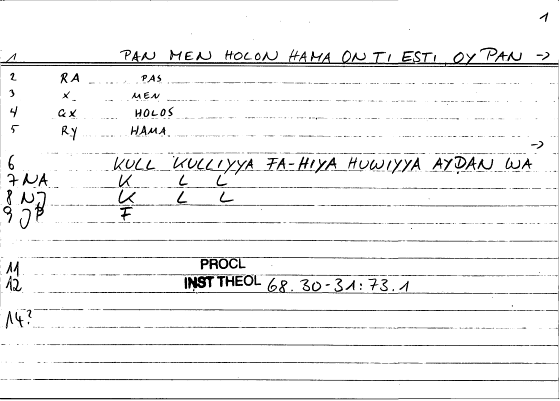 1
1 PAN MEN HOLON HAMA ON TI ESTI, OY PAN ->
2 RA PAS
3 X MEN
4 GX HOLOS
5 RY HAMA
->
6 KULL KULLIYYA FA-HIYA HUWIYYA AYḌAN WA
7 NA K L L
8 NJ K L L
9 JP F
11 PROCL
12 INST THEOL 68.30-31:73.1
14?